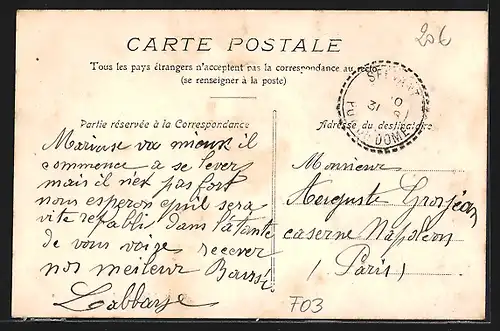 206
CARTE POSTALE
Tous les pays étrangers n'acceptent pas la correspondance au recto
(se renseigner à la poste)
Partie réservée à la Correspondance
Mariuse va mieux il
commence a se lever
mais il n'ex pas fort
nous esperon qu'il sera
vite retabli, dans l'atante
de vous voige recever
nos meileur
Labbaye
Adresse du destinataire
Monsieur
Auguste Grosjean
caserne Napoleon
(Paris)
PUY DE DOME
F03